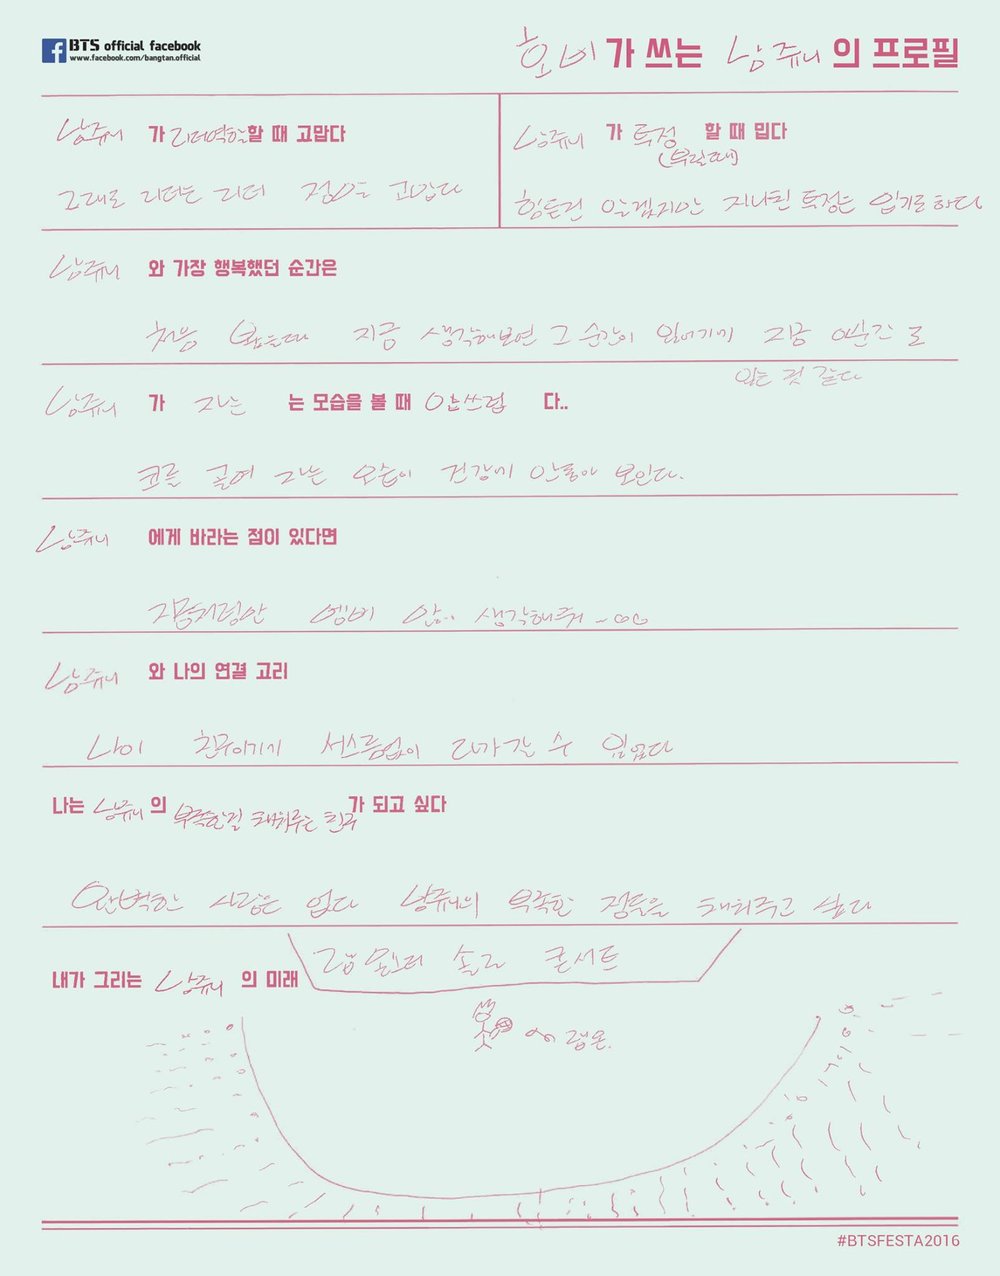 BTS official facebook
www.facebook.com/bangtan.official
호비가 쓰는 남쥬니의 프로필
남쥬니 가 리더역할할 때 고맙다
그대로 리더는 리더 점이 고맙다
남쥬니 가 투정 할 때 밉다
(부릴때)
힘든건 알겠지만 지나친 투정은 입기도하다
남쥬니 와 가장 행복했던 순간은
처음 봤는데 지금 생각해보면 그 순간이 있어기에 지금 이순간 도
있는 것 같다
남쥬니 가 자는 는 모습을 볼 때 안쓰럽 다..
코를 골며 자는 모습이 건강에 안좋아 보인다.
남쥬니 에게 바라는 점이 있다면
지금처럼만 멤버 많이 생각해줘
남쥬니 와 나의 연결 고리
나이 친구이기에 서스름없이 다가갈 수 있었다
나는 남쥬니의 부족한걸 채워주는 친구가 되고 싶다
완벽한 사람은 없다 남쥬니의 부족한 점들을 채워주고 싶다
내가 그리는 남쥬니 의 미래
랩몬스터 솔로 콘서트
랩몬.
#BTSFESTA2016